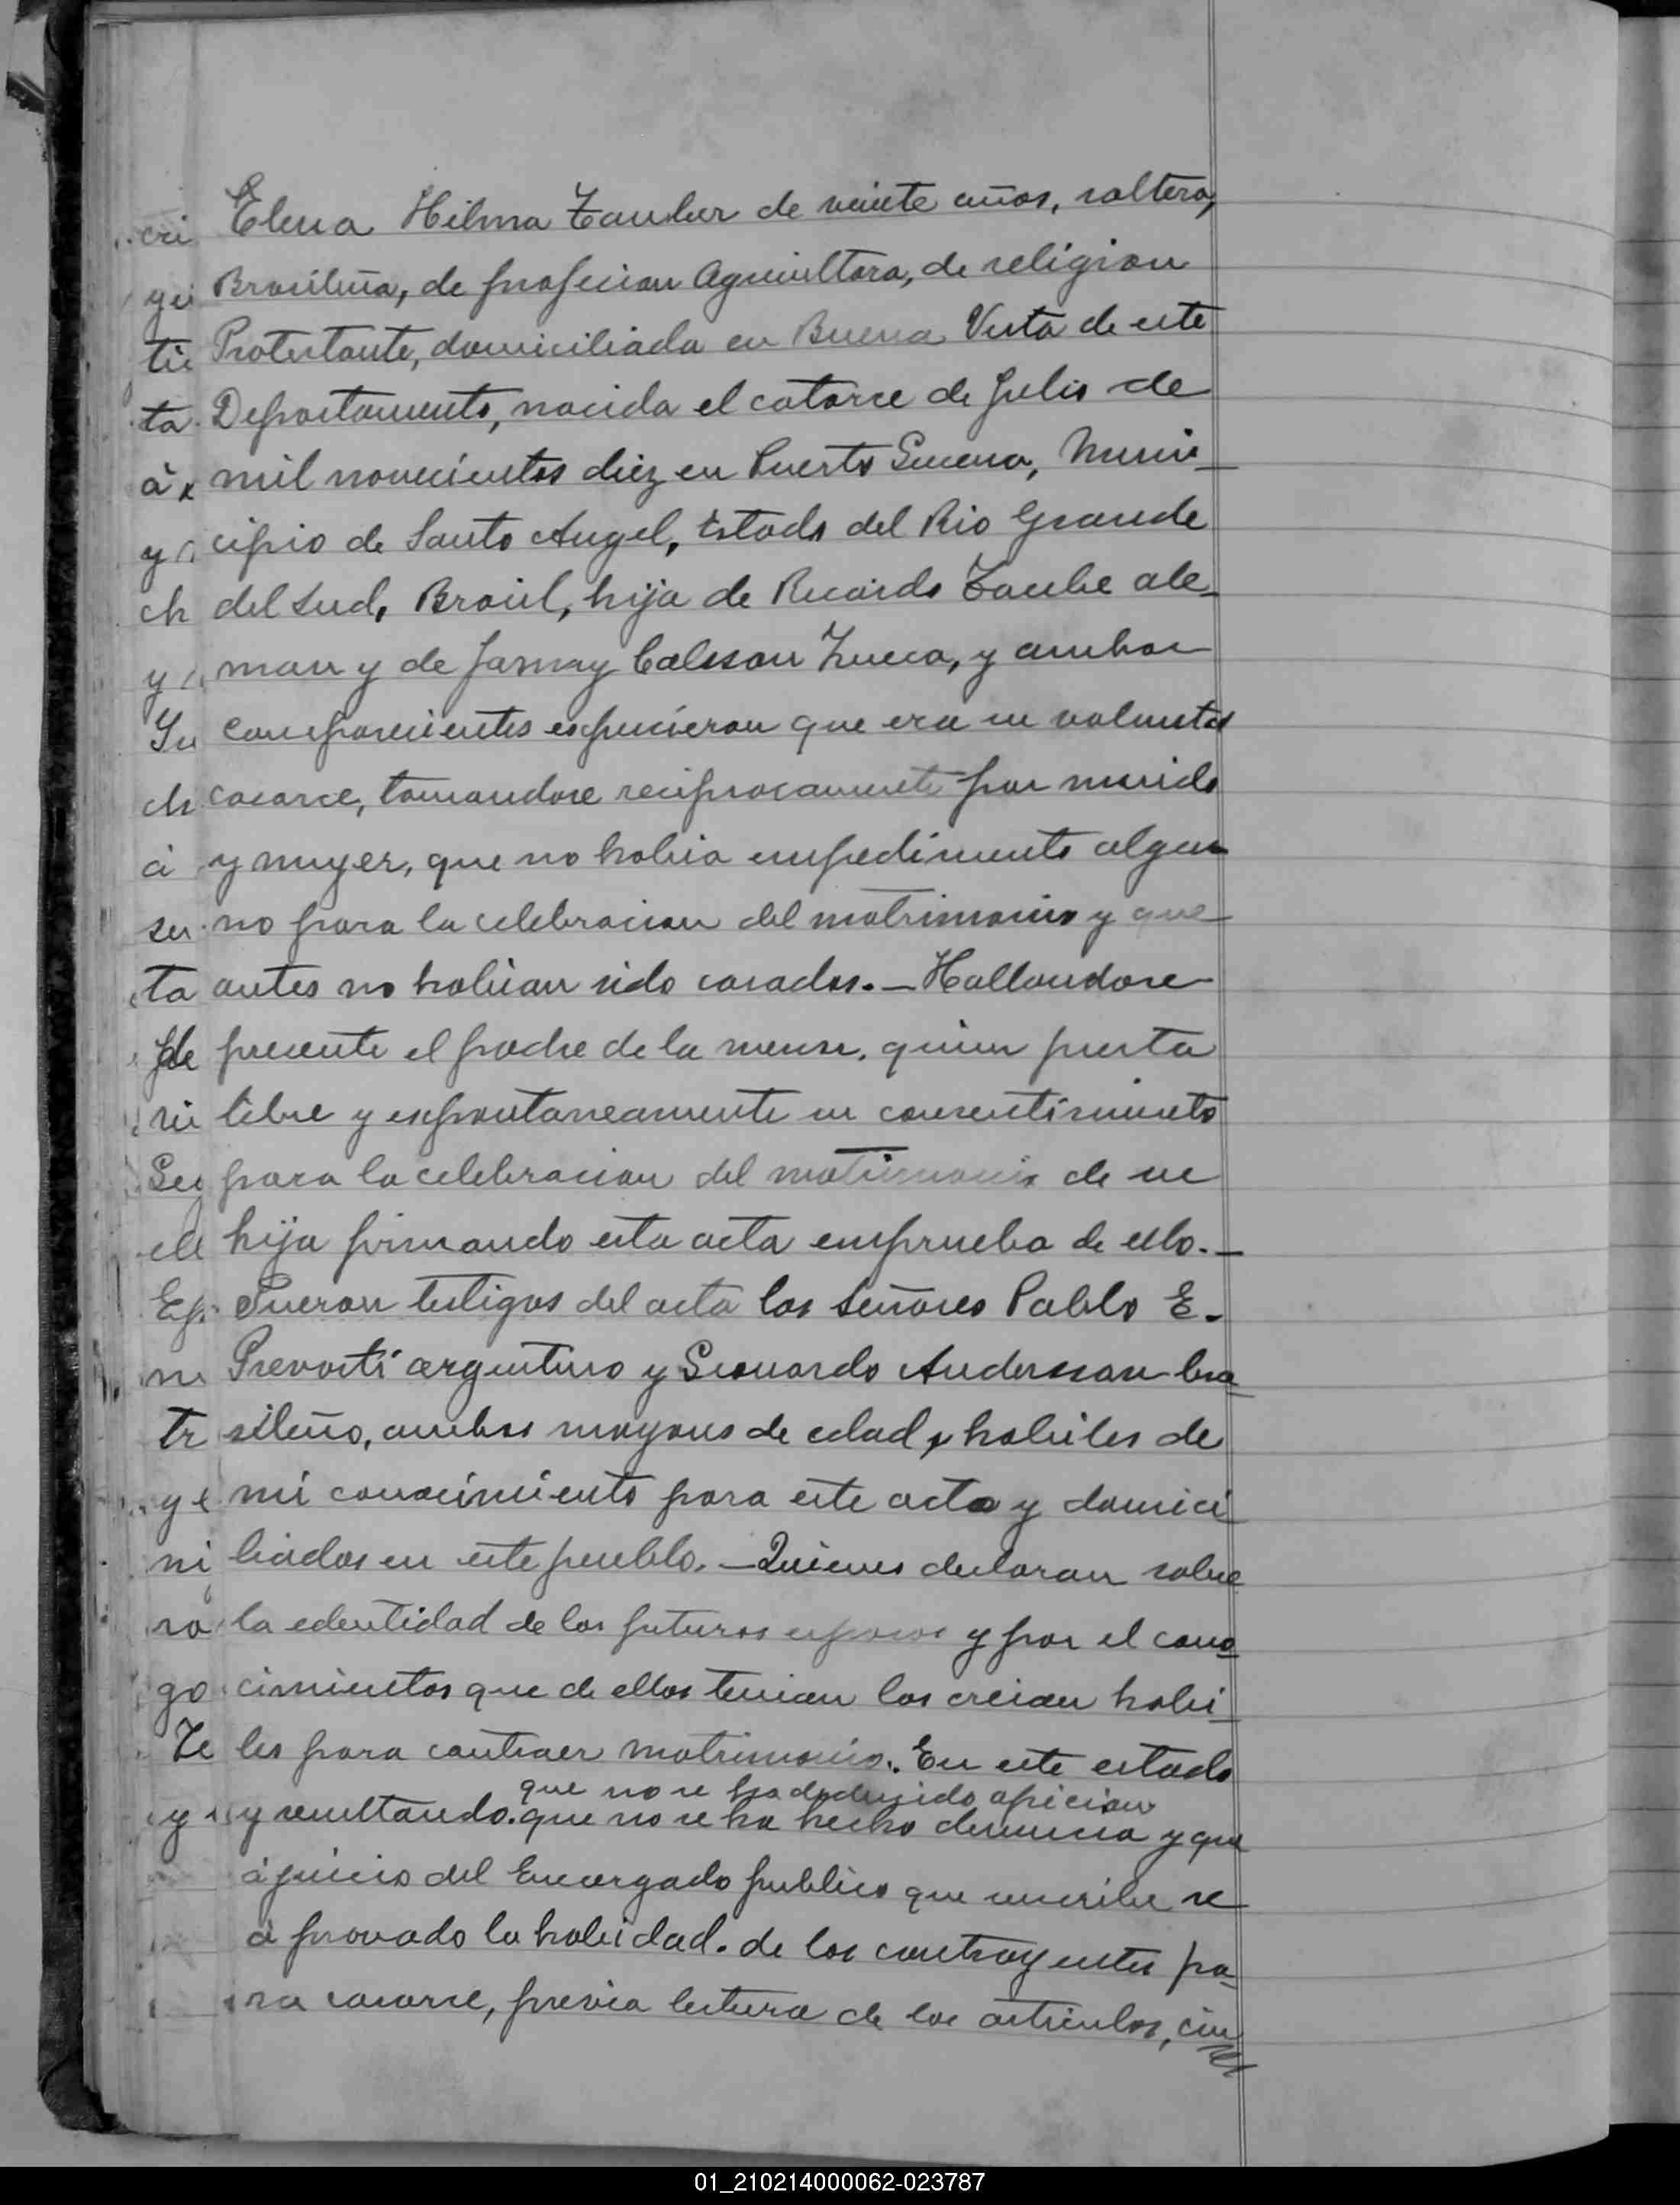 cri Elena Hilma Tauber de veinte años, soltera,
ye Brasileña, de profecion Agricultora, de religion
tie Protestante, domiciliada en Buena Vista de este
ta Departamento, nacida el catorce de Julio de
à mil novecientos diez en Puerto Lucena, Muni-
y cipio de Santo Angel, Estado del Rio Grande
ch del Sud, Brasil, hija de Ricardo Taube ale-
y man y de Fanny Calsson Zueca, y ambos
Su comparecientes espucieron que era su voluntad
ch casarce, tomandose reciprocamente por marido
à y muyer, que no habia empedimento algu-
su no para la celebracion del matrimonio y que
ta antes no habian sido casados. - Hallandose
de precente el padre de la menor, quien presta
ri libre y espontaneamente su consentimiento
Se para la celebracion del matrimonio de su
ell hija firmando esta acta emprueba de ello. -
Esp Fueron testigos del acta los Señores Pablo E.
ni Prevosti argentino y Leonardo Anderssan bra-
tr sileño, ambos mayores de edad, habiles de
y e mi conocimiento para este acto y domici
ni liados en este pueblo. - Quienes declaran sobre
ra la edentidad de los futuros esposos y por el cono-
go cimientos que de ellos tenian los creian habi-
Te les para contraer matrimonio. En este estado
que no se ha deducido opicion
y y resultando. que no se ha hecho denuncia y que
à juicio del Encargado publico que suscribe se
à provado la habidad. de los contrayentes pa-
ra casarse, previa lectura de los articulos, cin
01_210214000062-023787